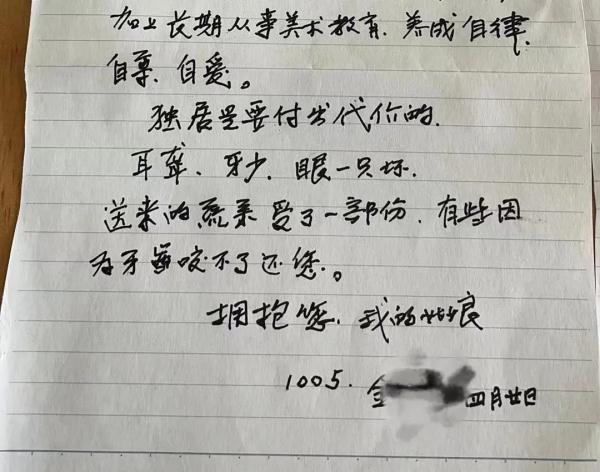 加上长期从事美术教育、养成自律、
自尊、自爱。
独居是要付出代价的、
耳聋、牙少、眼一只坏.
送来的蔬菜受了一部份、有些因
为牙齿咬不了还您。
拥抱您、我的姑娘
1005. 金 四月廿日